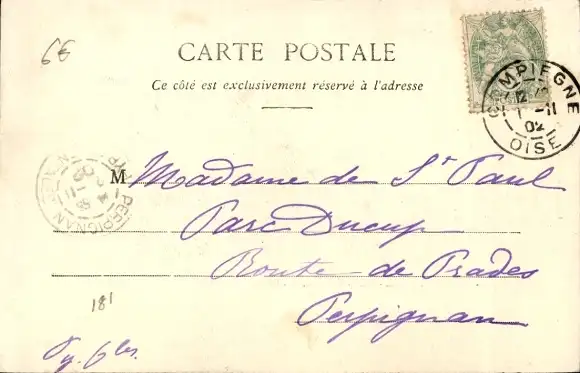 6€
CARTE POSTALE
Ce côté est exclusivement réservé à l'adresse
COMPIEGNE
12
1 -11
02
OISE
PERPIGNAN
M Madame de St Paul
Parc Ducup
Route de Prades
Perpignan
181